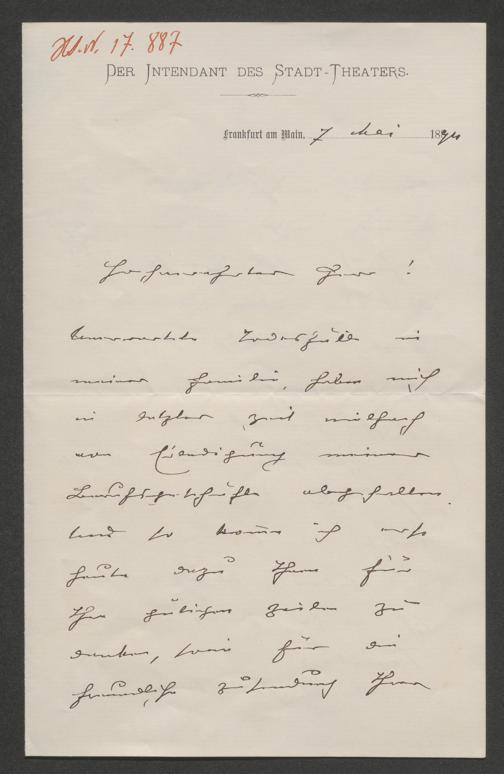 HS.N. 17.887
DER INTENDANT DES STADT-THEATERS.
Frankfurt am Main, 7 Mai 1890
Hochverehrter Herr!
Unerwartete Todesfälle in
meiner Familie, haben mich
in letzter Zeit vielfach
von Erledigung meiner
Berufsgeschäfte abgehalten.
Und so komme ich erst
heute dazu Ihnen für
Ihre gütigen Zeilen zu
danken, wie für die
freundliche Zusendung Ihres